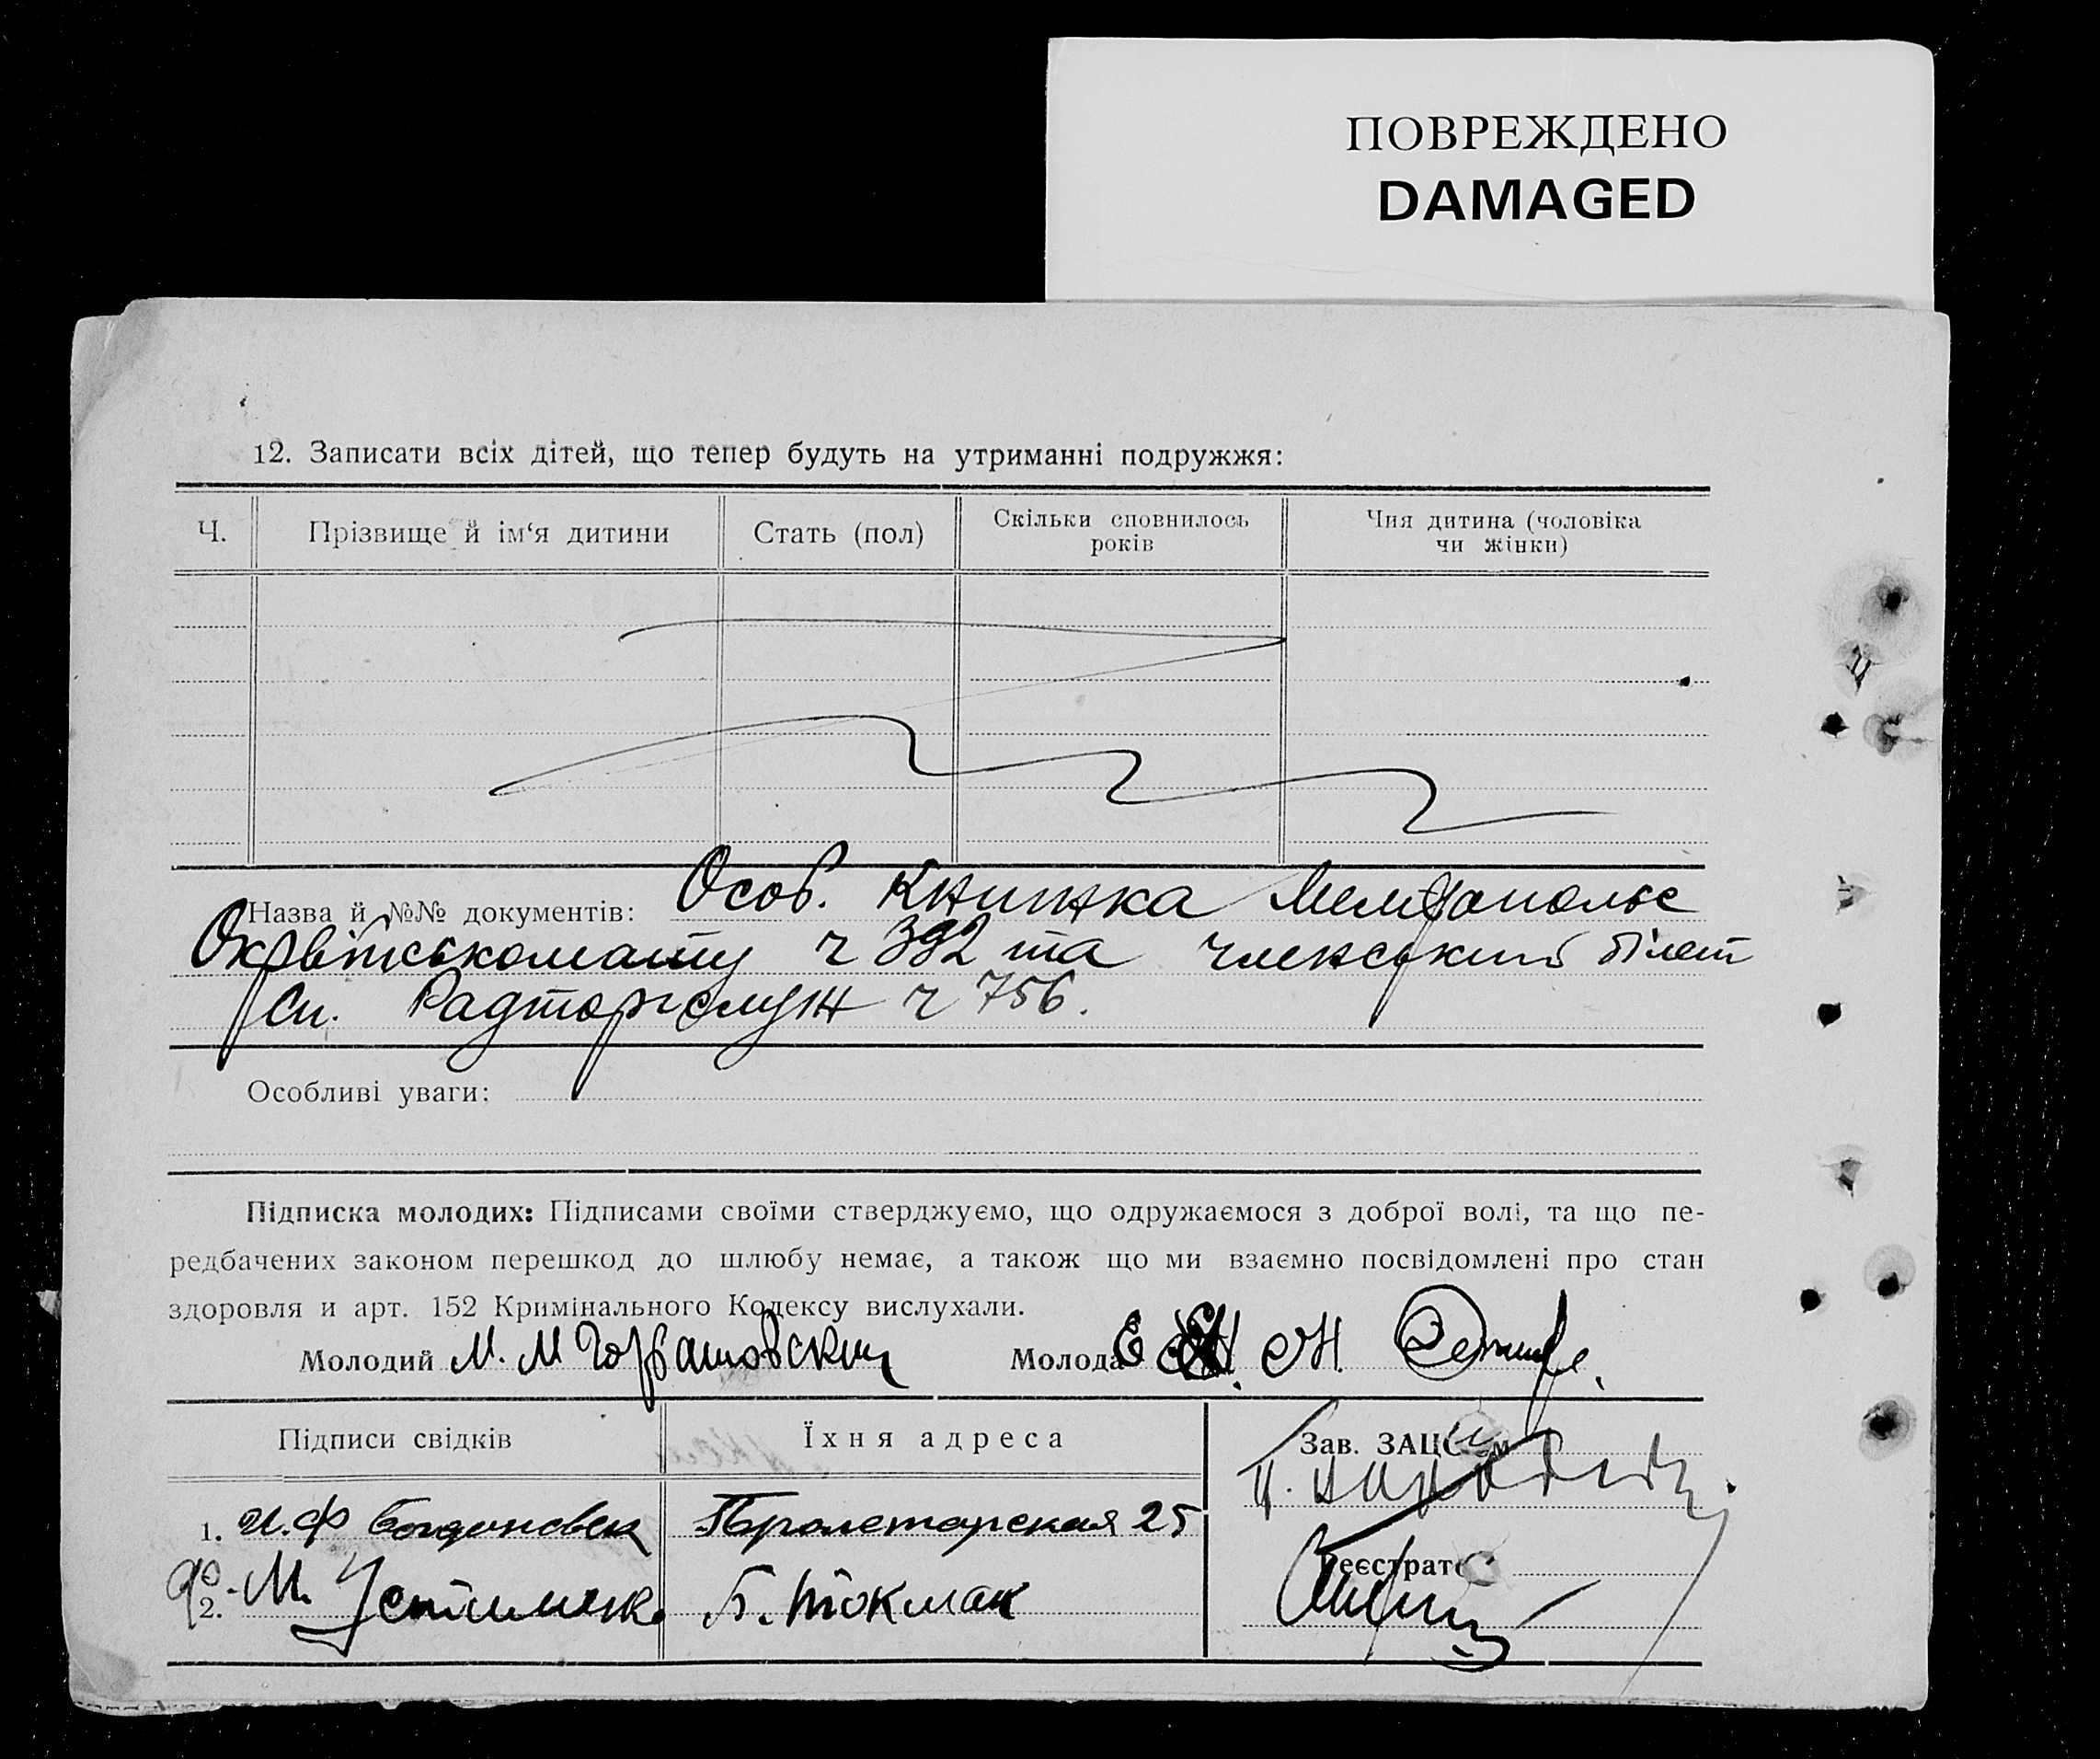 ПОВРЕЖДЕНО
DAMAGED
12. Записати всіх дітей, що тепер будуть на утриманні подружжя:
Ч. Прізвище й ім‘я дитини Стать (пол) Скільки сповнилось років Чия дитина (чоловіка чи жінки)
Назва й №№ документів: Особ. Книжка
Окрвійськомату ч 392 та членський білет
Сп. Радторгслуж ч 756.
Особливі уваги:
Підписка молодих: Підписами своїми стверджуємо, що одружаємося з доброї волі, та що пе-
редбачених законом перешкод до шлюбу немає, а також що ми взаємно посвідомлені про стан
здоровля и арт. 152 Кримінального Кодексу вислухали.
Молодий М. М Молода Е
Підписи свідків Їхня адреса Зав. ЗАЦС‘ом
1. И.Ф Пролетарская 25
Реєстрато
2. М. Устименко Б. Токмак